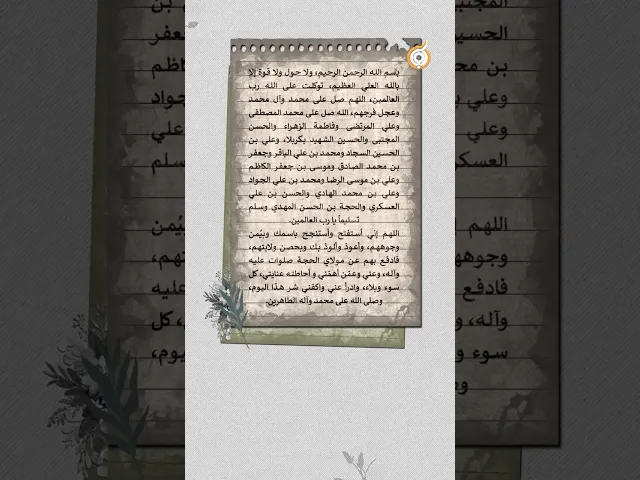 بسم الله الرحمن الرحيم، ولا حول ولا قوة إلا
بالله العلي العظيم، توكلت على الله رب
العالمين، اللهم صل على محمد وآل محمد
وعجل فرجهم، الله صل على محمد المصطفى
وعلي المرتضى وفاطمة الزهراء والحسن
المجتبى والحسين الشهيد بكربلا، وعلي بن
الحسين السجاد ومحمد بن علي الباقر وجعفر
بن محمد الصادق وموسى بن جعفر الكاظم
وعلي بن موسى الرضا ومحمد بن علي الجواد
وعلي بن محمد الهادي والحسن بن علي
العسكري والحجة بن الحسن المهدي وسلم
تسليماً يا رب العالمين.
اللهم إني أستفتح وأستنجح باسمك وبيُمن
وجوههم، وأعوذ وألوذ بك وبحصن ولايتهم،
فادفع بهم عن مولاي الحجة صلوات عليه
وآله، وعني وعمّن أهمّني و أحاطته عنايتي، كل
سوء وبلاء، وادرأ عني واكفني شر هذا اليوم،
وصلى الله على محمد وآله الطاهرين.